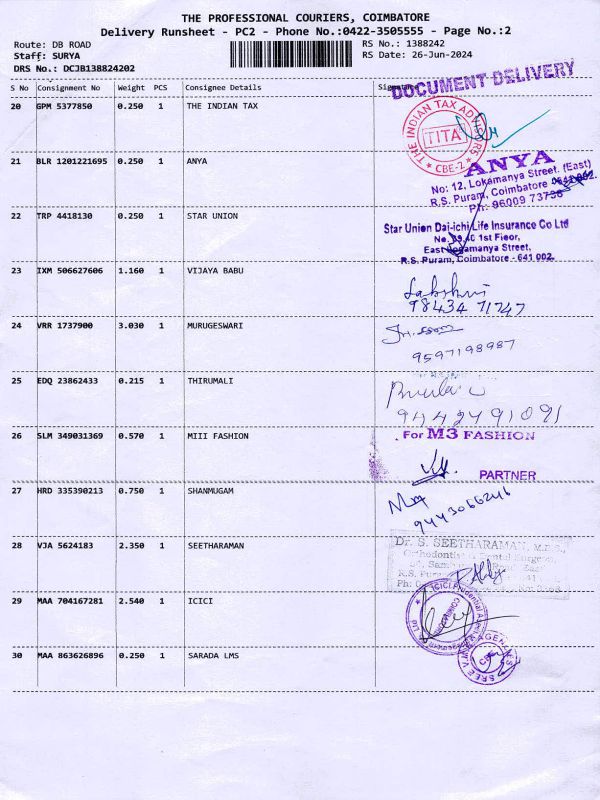 THE PROFESSIONAL COURIERS, COIMBATORE
Delivery Runsheet - PC2 - Phone No.:0422-3505555 - Page No.:2
Route: DB ROAD RS No.: 1388242
Staff: SURYA RS Date: 26-Jun-2024
DRS No.: DCJB138824202
DOCUMENT DELIVERY
S No Consignment No Weight PCS Consignee Details Signature
20 GPM 5377850 0.250 1 THE INDIAN TAX
THE INDIAN TAX ADVISORS
TITA
CBE-2
21 BLR 1201221695 0.250 1 ANYA
ANYA
No: 12, Lokamanya Street. (East)
R.S. Puram, Coimbatore
Ph: 96009 73736
22 TRP 4418130 0.250 1 STAR UNION
Star Union Dai-ichi Life Insurance Co Ltd
1st Floor,
East Logamanya Street,
R.S. Puram, Coimbatore - 641 002.
23 IXM 506627606 1.160 1 VIJAYA BABU
Lakshmi
98434 71747
24 VRR 1737900 3.030 1 MURUGESWARI
9597198987
25 EDQ 23862433 0.215 1 THIRUMALI
9442491091
26 SLM 349031369 0.570 1 MIII FASHION
For M3 FASHION
PARTNER
27 HRD 335390213 0.750 1 SHANMUGAM
9443066246
28 VJA 5624183 2.350 1 SEETHARAMAN
Dr. S. SEETHARAMAN, M.D.S.,
Orthodontist & Dental Surgeon,
29 MAA 704167281 2.540 1 ICICI
ICICI Prudential
30 MAA 863626896 0.250 1 SARADA LMS